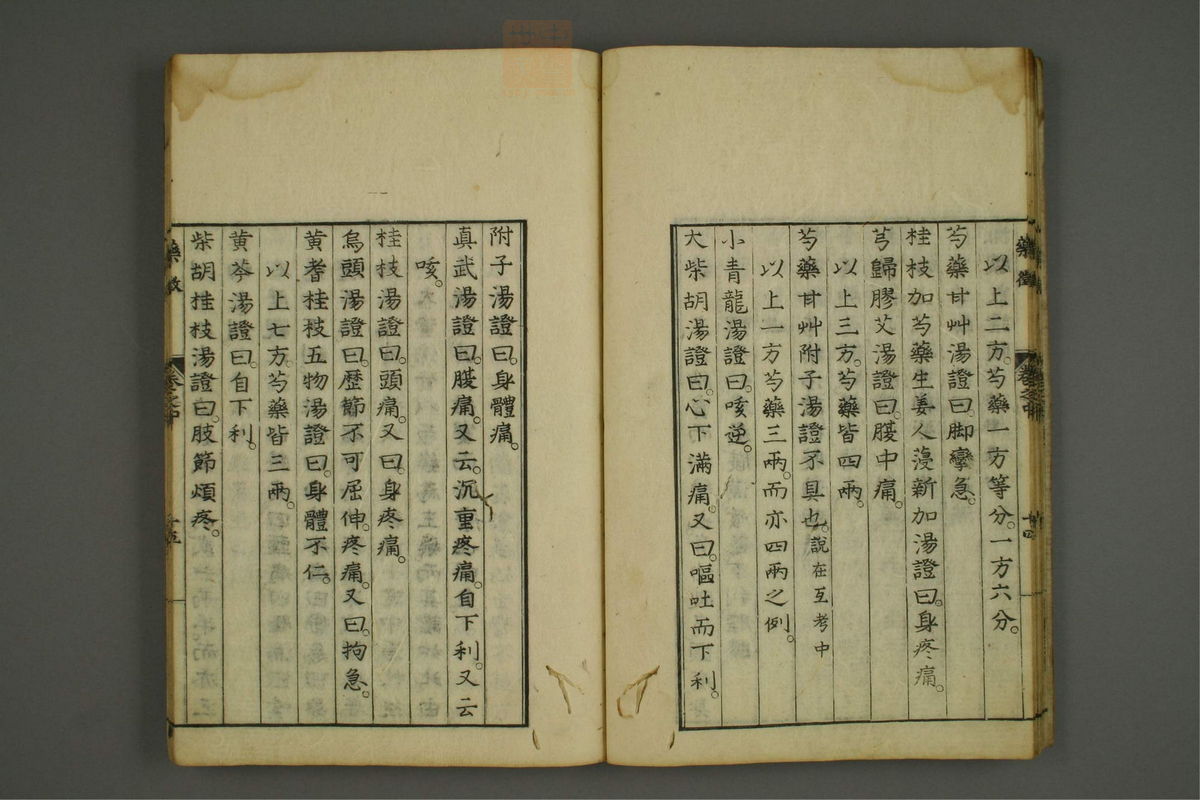 以上二方。芍藥一方等分。一方六分。
芍藥甘艸湯證曰。脚攣急。
桂枝加芍藥生姜人薓新加湯證曰。身疼痛。
芎歸膠艾湯證曰。腹中痛。
以上三方。芍藥皆四兩。
芍藥甘艸附子湯證不具也。說在互考中
以上一方芍藥三兩。而亦四兩之例。
小青龍湯證曰。咳逆。
大柴胡湯證曰。心下滿痛。又曰。嘔吐而下利。
附子湯證曰。身體痛。
真武湯證曰。腹痛。又云。沉重疼痛。自下利。又云
咳。
桂枝湯證曰。頭痛。又曰。身疼痛。
烏頭湯證曰。歷節不可屈伸。疼痛。又曰。拘急。
黃耆桂枝五物湯證曰。身體不仁。
以上七方。芍藥皆三兩。
黃芩湯證曰。自下利。
柴胡桂枝湯證曰。肢節煩疼。